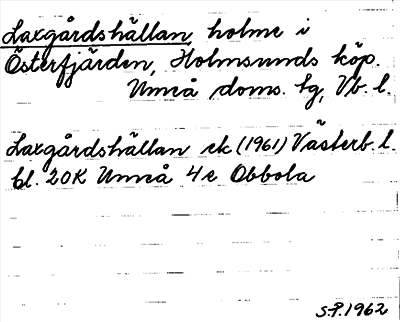 Laxgårdshällan, holme i
Österfjärden, Holmsunds köp.
Umeå doms. tg, Vb. l.
Laxgårdshällan ek (1961) Västerb. l.
bl. 20K Umeå 4e Obbola
S.P. 1962